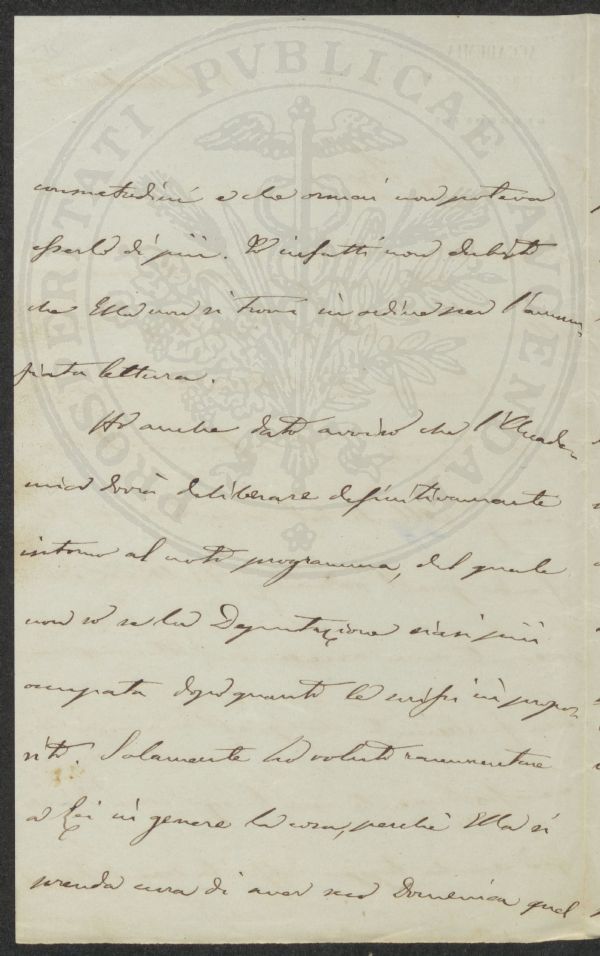 PROSPERITATI PVBLICAE AVGENDA
consuetudini e che ormai non poteva
esserlo di più. Io infatti non dubito
che Ella non si trovi in ordine per l'annun-
ziata lettura.
Ho anche dato avviso che l'Accade-
mia dovrà deliberare definitivamente
intorno al noto programma, del quale
non so se la Deputazione siasi più
occupata dopo quanto le scrissi in propo-
sito. Solamente ho voluto rammentare
a Lei in genere la cosa, perchè Ella si
prenda cura di aver seco Domenica quel